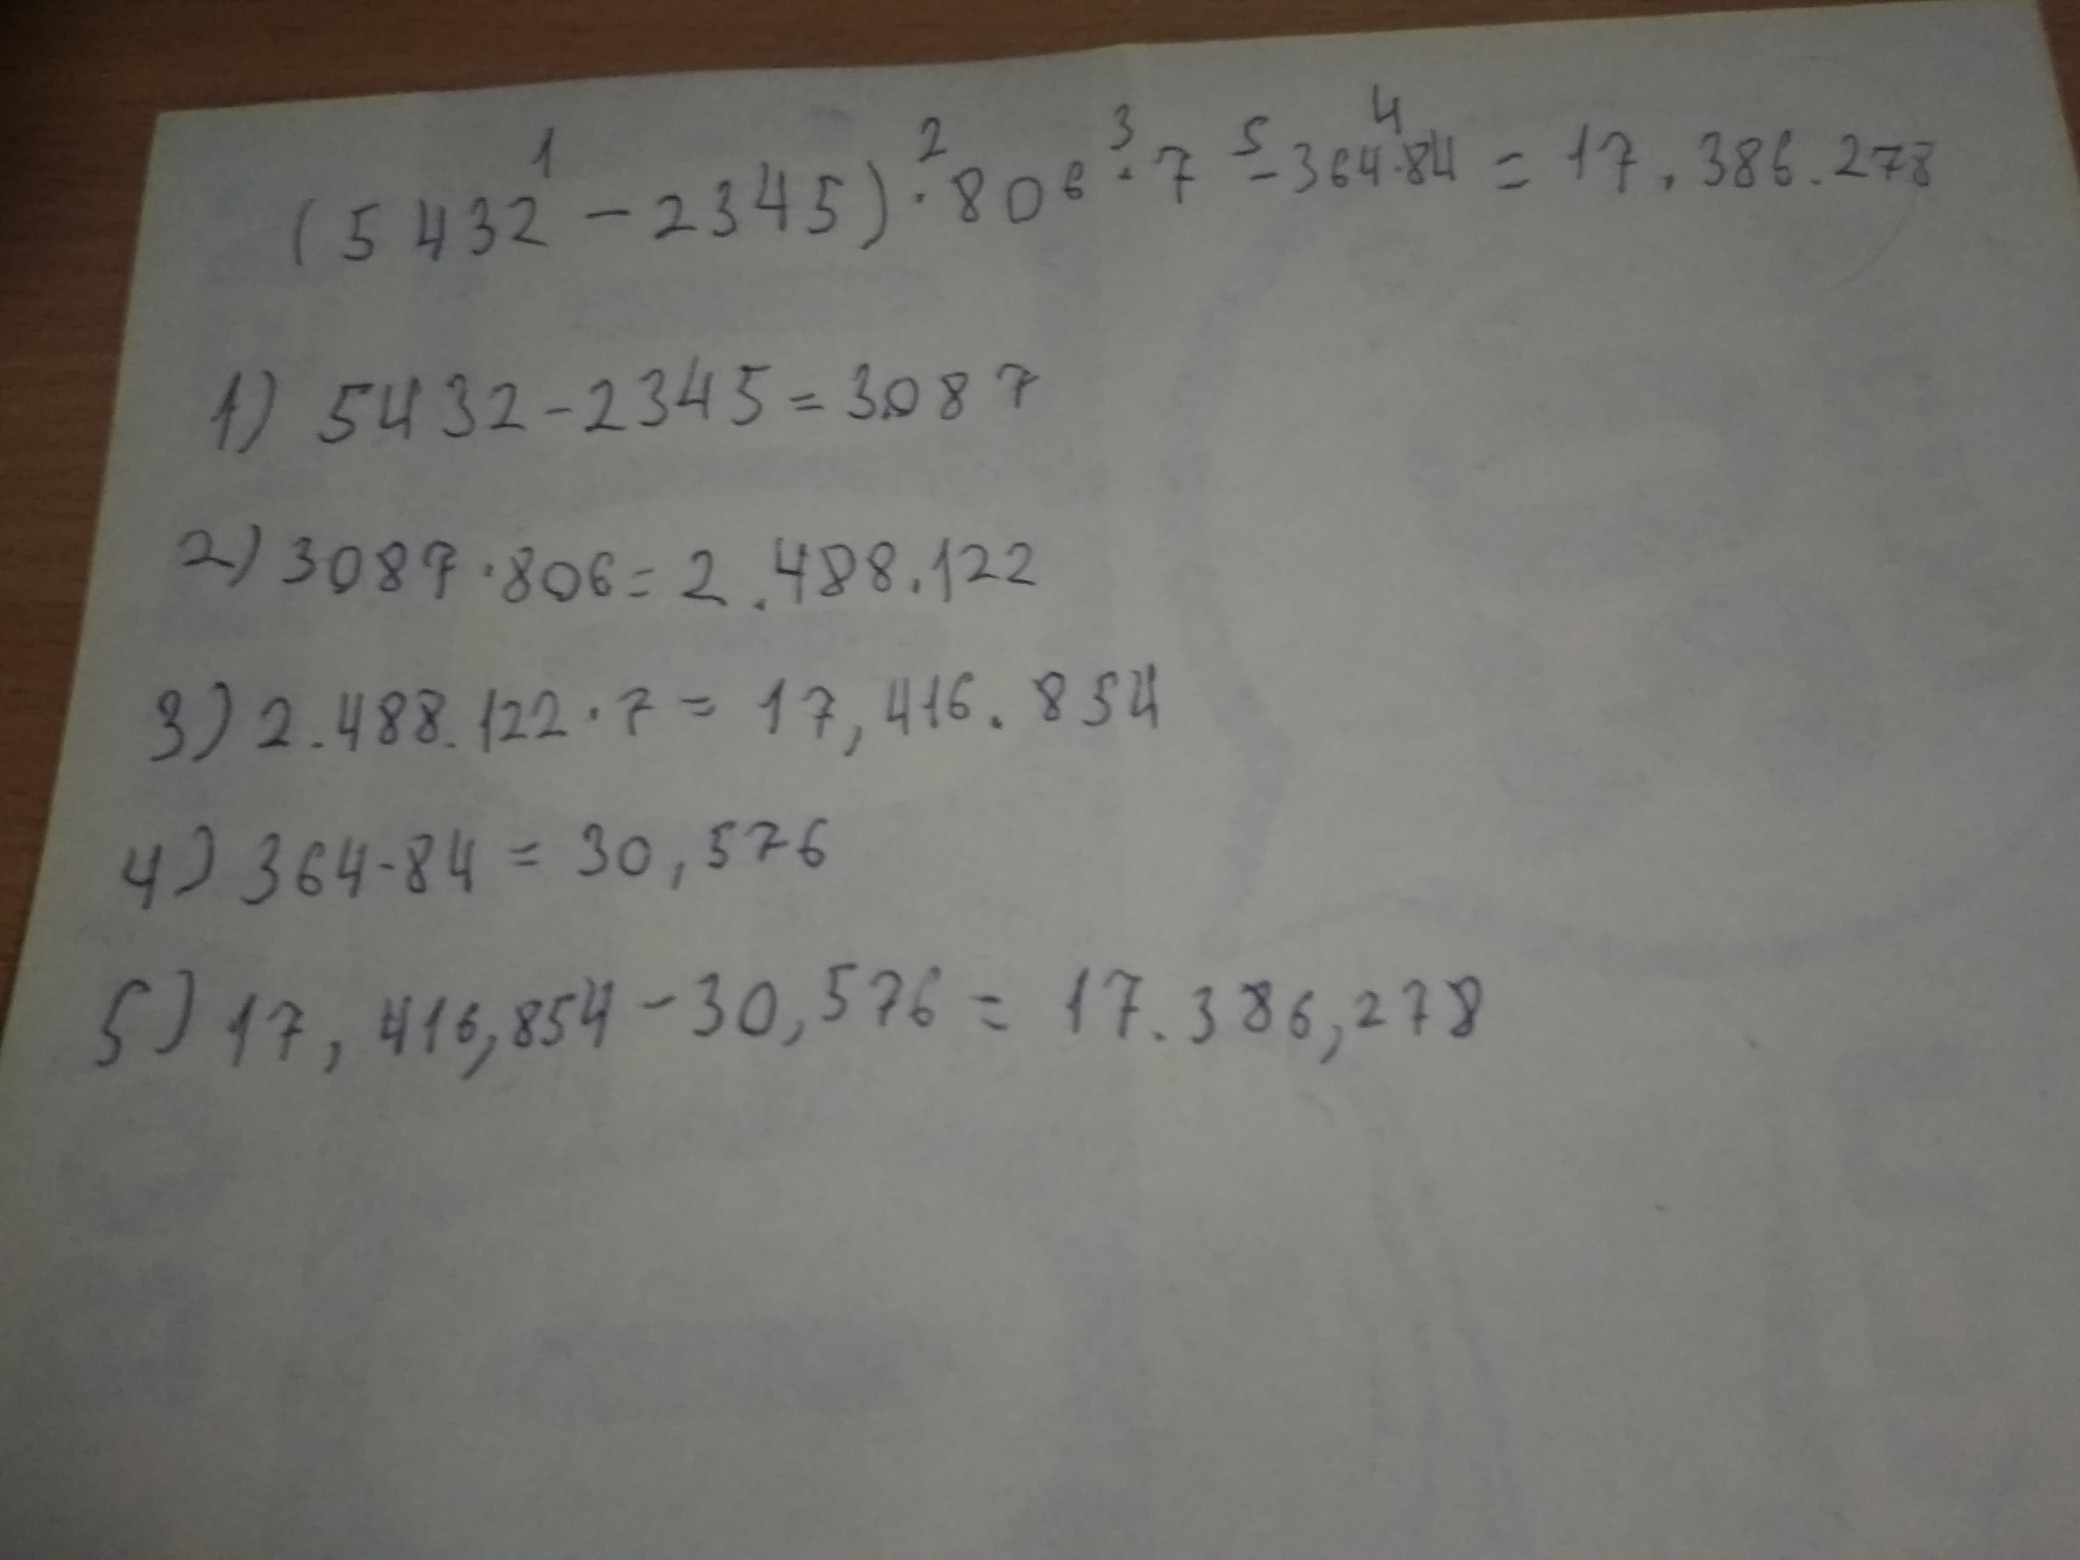 1 2 3 5 4
(5432 - 2345) · 806 · 7 - 364·84 = 17.386.278
1) 5432-2345=3087
2) 3087·806=2.488.122
3) 2.488.122·7=17,416.854
4) 364·84=30,576
5) 17,416,854-30,576=17.386,278